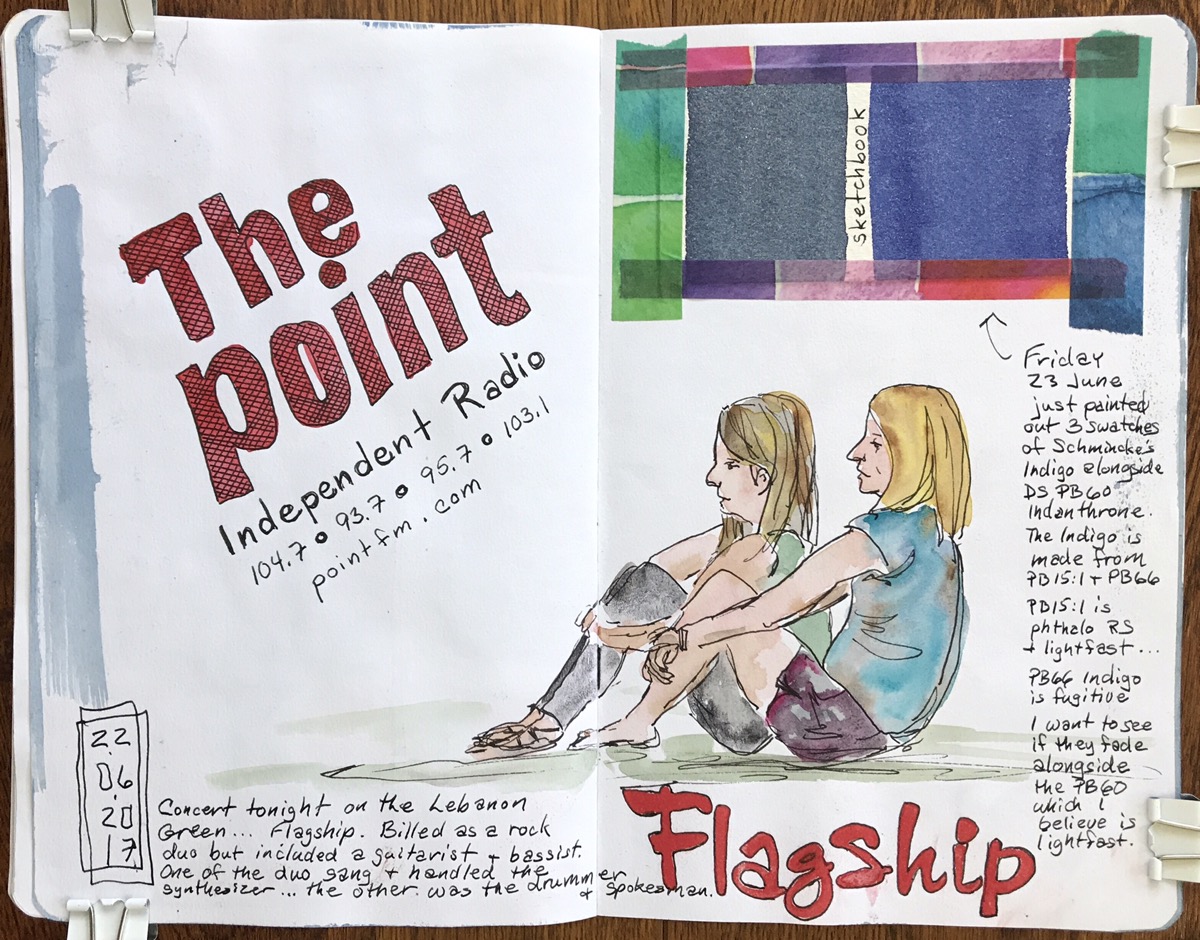 The
point
Independent Radio
104.7 o 93.7 o 95.7 o 103.1
pointfm.com
22
.
06
.
20
17
Concert tonight on the Lebanon
Green... Flagship. Billed as a rock
duo but included a guitarist + bassist.
One of the duo sang + handled the
synthesizer... the other was the drummer
+ spokesman.
sketchbook
Friday
23 June
just painted
out 3 swatches
of Schmincke's
Indigo alongside
DS PB60
Indanthrone.
The Indigo is
made from
PB15:1 + PB66
PB15:1 is
phthalo RS
+ lightfast...
PB66 Indigo
is fugitive
I want to see
if they fade
alongside
the PB60
which I
believe is
lightfast.
Flagship